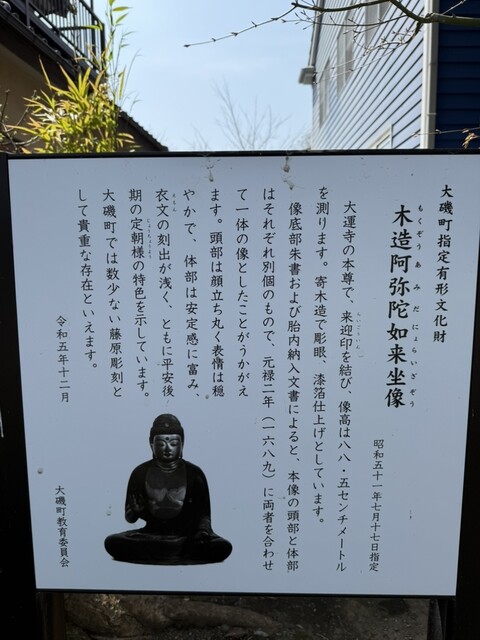 大磯町指定有形文化財
もくぞうあみだにょらいざぞう
木造阿弥陀如来坐像
昭和五十一年七月十七日指定
大運寺の本尊で、来迎印を結び、像高は八八・五センチメートル
らいごういん
を測ります。寄木造で彫眼、漆箔仕上げとしています。
像底部朱書および胎内納入文書によると、本像の頭部と体部
はそれぞれ別個のもので、元禄二年(一六八九)に両者を合わせ
て一体の像としたことがうかがえ
ます。頭部は顔立ち丸く表情は穏
やかで、体部は安定感に富み、
衣文の刻出が浅く、ともに平安後
えもん
期の定朝様の特色を示しています。
じょうちょうよう
大磯町では数少ない藤原彫刻と
して貴重な存在といえます。
令和五年十二月
大磯町教育委員会